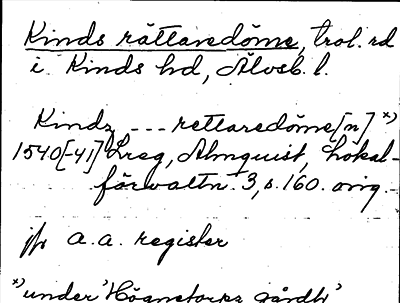 Kinds rättaredöme, trol. rd
i Kinds hd, Älvsb. l.
Kindz --- rettaredöme[n] *)
1540[-41] Lreg, Almquist, Lokal-
förvaltn. 3, s. 160. orig.
jfr a.a. register
*) under 'Högnetorps gårdh'